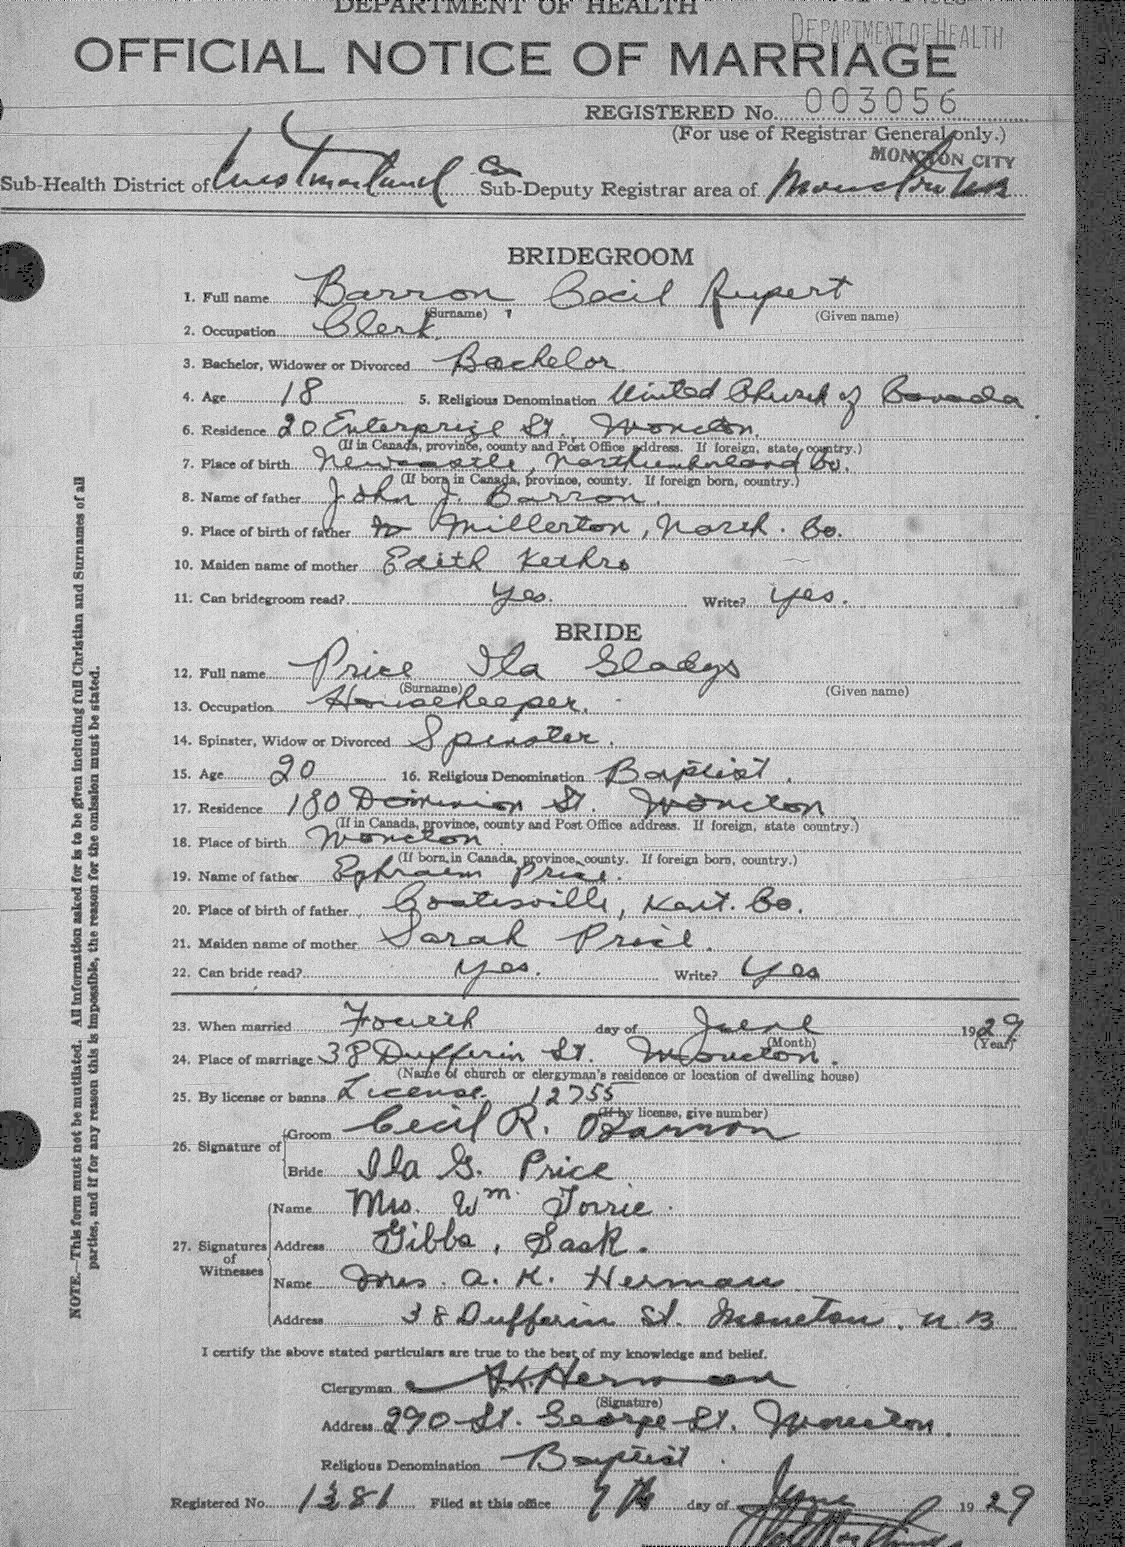 DEPARTMENT OF HEALTH
DEPARTMENT OF HEALTH
OFFICIAL NOTICE OF MARRIAGE
REGISTERED No. 003056
(For use of Registrar General only.)
MONCTON CITY
Sub-Health District of Westmorland Co Sub-Deputy Registrar area of Moncton
BRIDEGROOM
1. Full name Barron Cecil Rupert
(Surname) (Given name)
2. Occupation Clerk
3. Bachelor, Widower or Divorced Bachelor
4. Age 18 5. Religious Denomination United Church of Canada
6. Residence 20 Enterprise St. Moncton.
(If in Canada, province, county and Post Office address. If foreign, state country.)
7. Place of birth Newcastle, Northumberland Co.
(If born in Canada, province, county. If foreign born, country.)
8. Name of father John J. Barron.
9. Place of birth of father Millerton, North. Co.
10. Maiden name of mother Edith Kethro
11. Can bridegroom read? Yes. Write? Yes.
BRIDE
12. Full name Price Ila Gladys
(Surname) (Given name)
13. Occupation Housekeeper.
14. Spinster, Widow or Divorced Spinster.
15. Age 20 16. Religious Denomination Baptist.
17. Residence 180 Dominion St. Moncton
(If in Canada, province, county and Post Office address. If foreign, state country.)
18. Place of birth Moncton
(If born in Canada, province, county. If foreign born, country.)
19. Name of father Ephraim Price.
20. Place of birth of father Coatesville, Kent. Co.
21. Maiden name of mother Sarah Price.
22. Can bride read? Yes. Write? Yes
23. When married Fourth day of June 1929
(Month) (Year)
24. Place of marriage 38 Dufferin St. Moncton.
(Name of church or clergyman's residence or location of dwelling house)
25. By license or banns License. 12755
(If by license, give number)
26. Signature of Groom Cecil R. Barron
Bride Ila G. Price
27. Signatures of Witnesses
Name Mrs. Wm. Torrie.
Address Gibbs, Sask.
Name Mrs. A. K. Herman
Address 38 Dufferin St. Moncton. N.B
I certify the above stated particulars are true to the best of my knowledge and belief.
Clergyman A.K. Herman
(Signature)
Address 290 St. George St. Moncton.
Religious Denomination Baptist.
Registered No. 1381 Filed at this office 7th day of June 1929
NOTE.—This form must not be mutilated. All information asked for is to be given including full Christian and Surnames of all
parties, and if for any reason this is impossible, the reason for the omission must be stated.